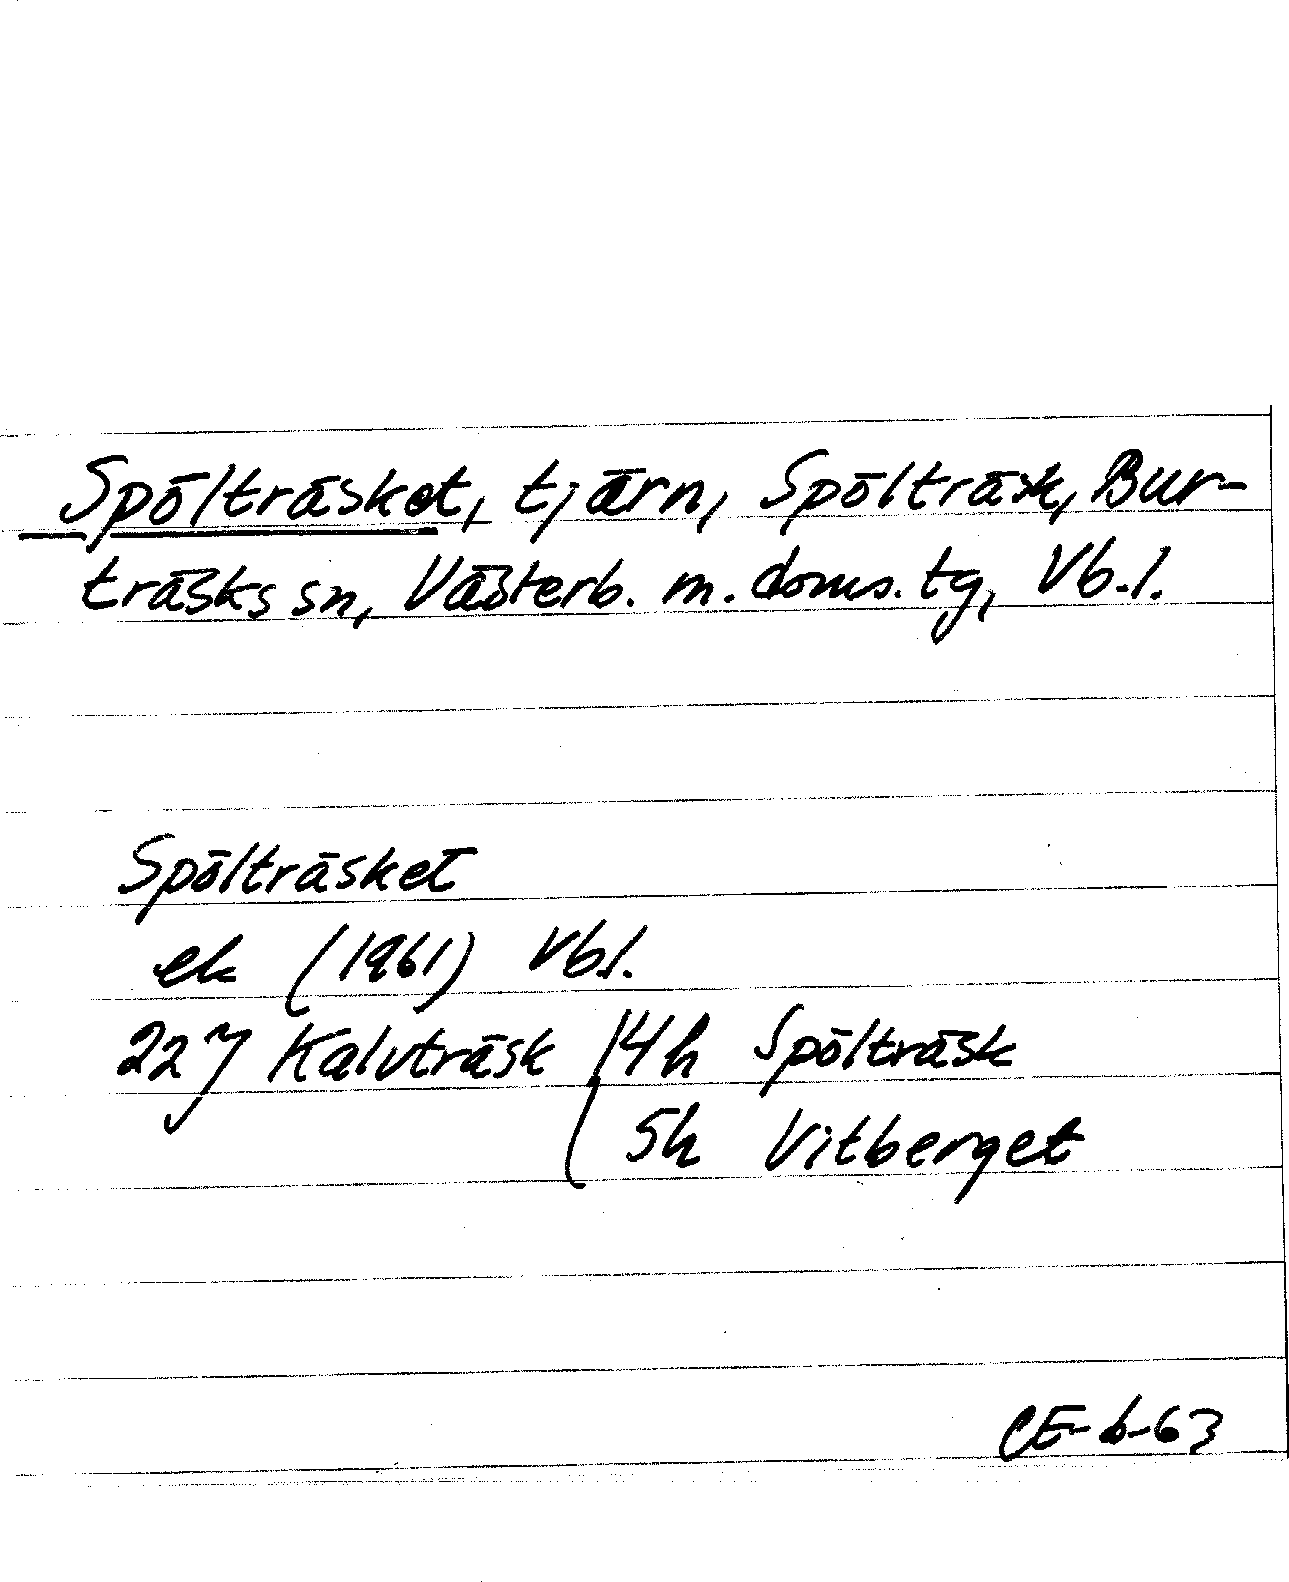 Spölträsket, tjärn, Spölträsk, Bur-
träsks sn, Västerb. m. doms. tg, Vb. l.
Spölträsket
ek (1961) Vbl.
22 J Kalvträsk 14h Spölträsk
5h Vitberget
CE-6-63